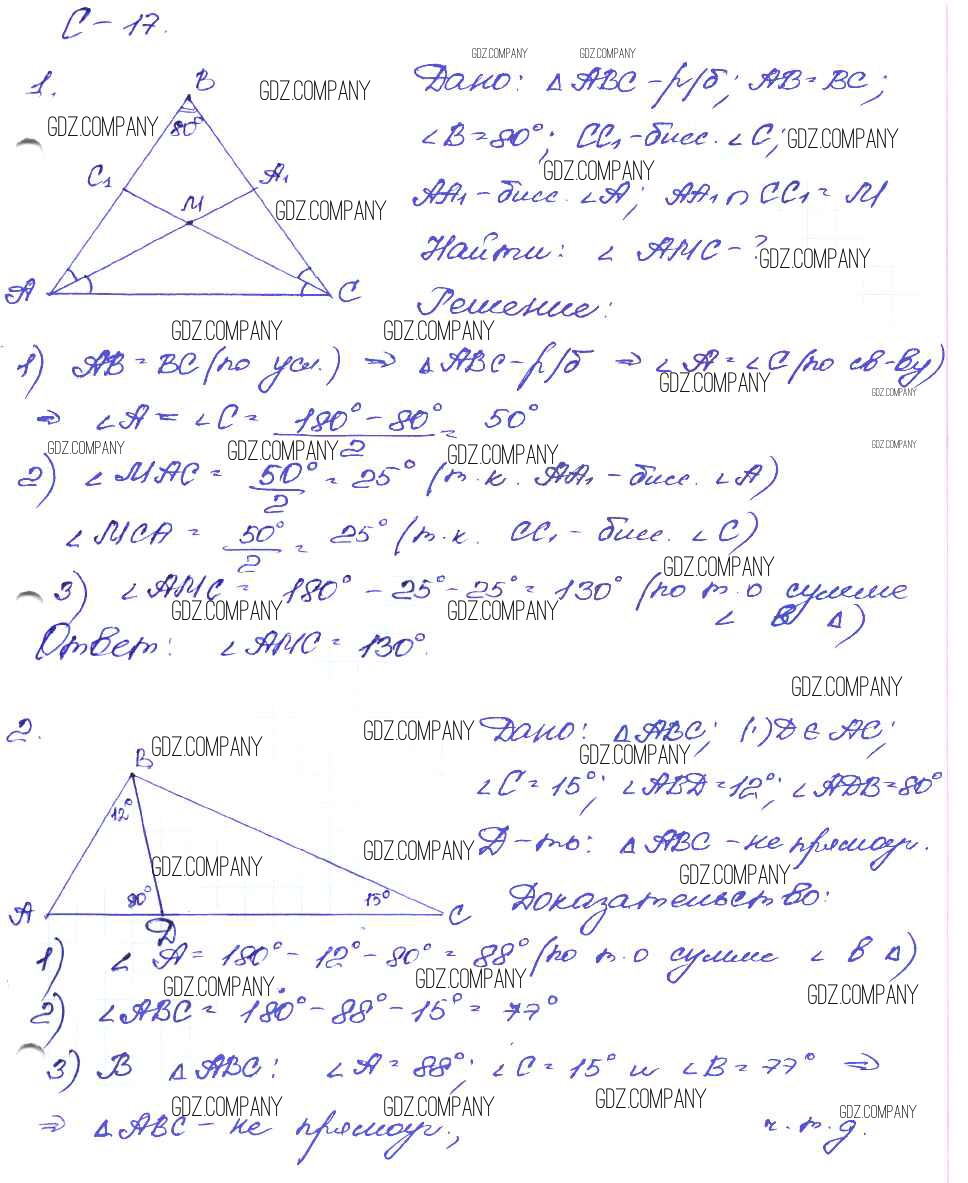 С-17.
GDZ.COMPANY GDZ.COMPANY
1.
B
80°
C₁
A₁
M
A
C
Дано: △ ABC - р/б; AB = BC;
GDZ.COMPANY
GDZ.COMPANY
∠B = 80°; CC₁ - бисс. ∠C; GDZ.COMPANY
GDZ.COMPANY
AA₁ - бисс. ∠A; AA₁ ∩ CC₁ = M
GDZ.COMPANY
Найти: ∠ AMC - ? GDZ.COMPANY
Решение:
GDZ.COMPANY GDZ.COMPANY
1) AB = BC (по усл.) ⇒ △ ABC - р/б ⇒ ∠A = ∠C (по св-ву)
GDZ.COMPANY GDZ.COMPANY
⇒ ∠A = ∠C = (180° - 80°)/2 = 50°
GDZ.COMPANY GDZ.COMPANY GDZ.COMPANY GDZ.COMPANY
2) ∠MAC = 50°/2 = 25° (т.к. AA₁ - бисс. ∠A)
∠MCA = 50°/2 = 25° (т.к. CC₁ - бисс. ∠C)
GDZ.COMPANY
3) ∠AMC = 180° - 25° - 25° = 130° (по т. о сумме
GDZ.COMPANY GDZ.COMPANY
∠ в △)
Ответ: ∠AMC = 130°.
GDZ.COMPANY
2.
B
12°
80°
15°
A
D
C
GDZ.COMPANY GDZ.COMPANY
Дано: △ ABC; (·) D ∈ AC;
GDZ.COMPANY
∠C = 15°; ∠ABD = 12°; ∠ADB = 80°
Д-ть: △ ABC - не прямоуг.
GDZ.COMPANY GDZ.COMPANY GDZ.COMPANY
Доказательство:
1) ∠ A = 180° - 12° - 80° = 88° (по т. о сумме ∠ в △)
GDZ.COMPANY GDZ.COMPANY GDZ.COMPANY
2) ∠ABC = 180° - 88° - 15° = 77°
3) В △ ABC: ∠A = 88°; ∠C = 15° и ∠B = 77° ⇒
GDZ.COMPANY GDZ.COMPANY GDZ.COMPANY GDZ.COMPANY
⇒ △ ABC - не прямоуг., ч.т.д.